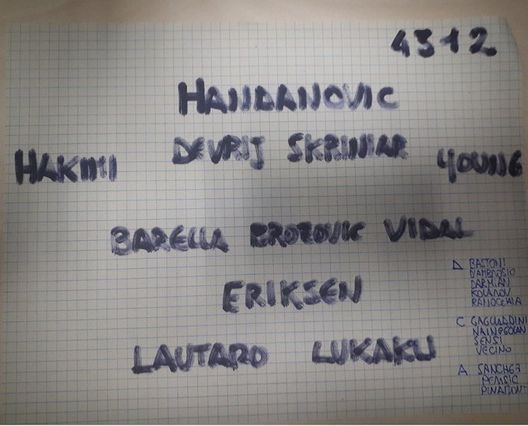 4312
HANDANOVIC
DEVRIJ SKRINIAR
HAKIMI YOUNG
BARELLA BROZOVIC VIDAL
ERIKSEN
LAUTARO LUKAKU
D BASTONI
D'AMBROSIO
DARMIAN
KOLAROV
RANOCCHIA
C GAGLIARDINI
NAINGGOLAN
SENSI
VECINO
A SANCHEZ
PERISIC
PINAMONTI